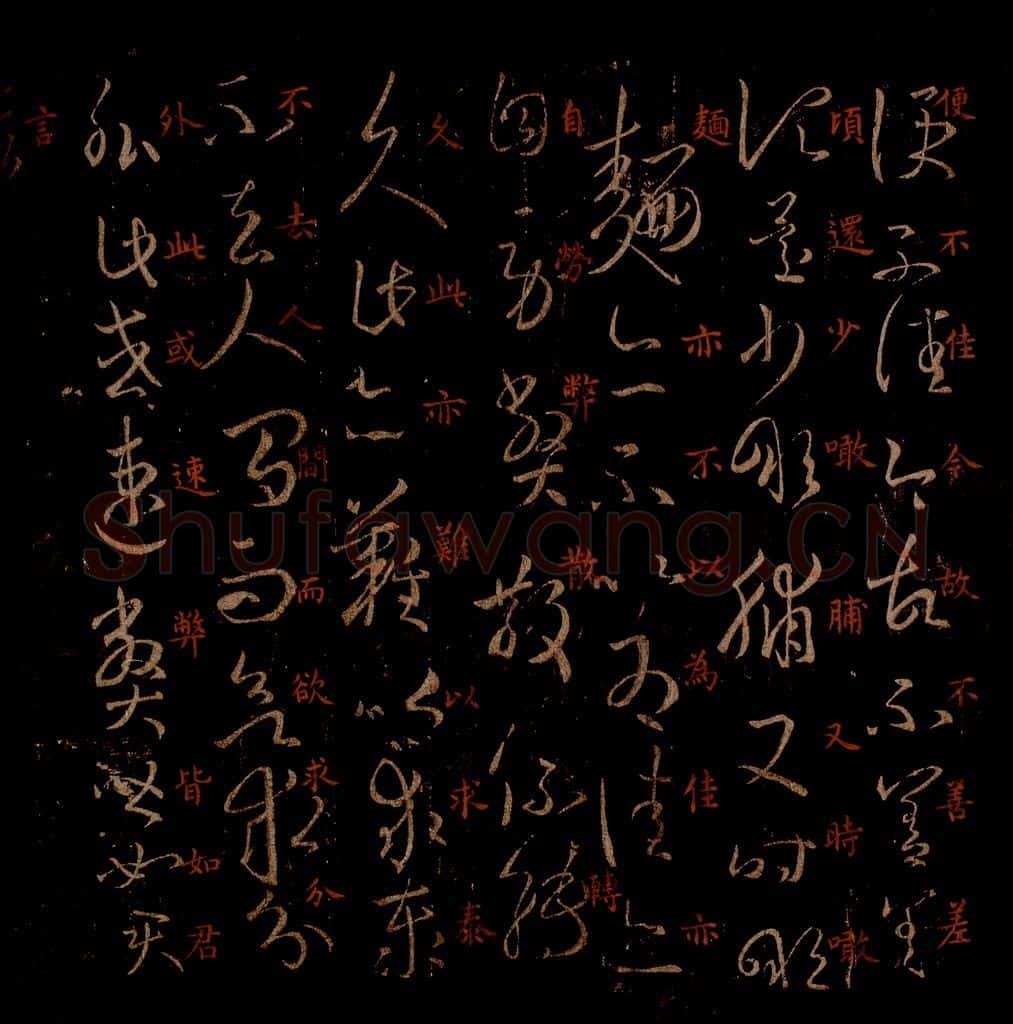 便不佳今故不善差
頃還少噉脯又時噉
麵亦不以為佳亦
自勞弊散係轉
久此亦難以求泰
不去人間而欲求分
外此或速弊皆如君
言
Shufawang.CN